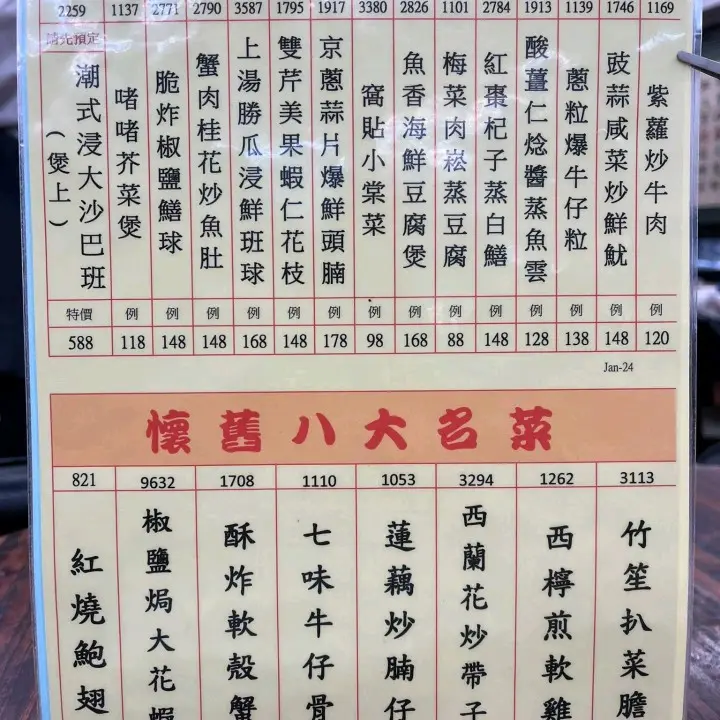 1169
紫蘿炒牛肉
例
120
1746
豉蒜咸菜炒鮮魷
例
148
1139
蔥粒爆牛仔粒
例
138
1913
酸薑仁焾醬蒸魚雲
例
128
2784
紅棗杞子蒸白鱔
例
148
1101
梅菜肉崧蒸豆腐
例
88
2826
魚香海鮮豆腐煲
例
168
3380
窩貼小棠菜
例
98
1917
京蔥蒜片爆鮮頭腩
例
178
1795
雙芹美果蝦仁花枝
例
148
3587
上湯勝瓜浸鮮班球
例
168
2790
蟹肉桂花炒魚肚
例
148
2771
脆炸椒鹽鱔球
例
148
1137
啫啫芥菜煲
例
118
2259
請先預定
潮式浸大沙巴班
(煲上)
特價
588
Jan-24
懷舊八大名菜
3113
竹笙扒菜膽
1262
西檸煎軟雞
3294
西蘭花炒帶子
1053
蓮藕炒腩仔
1110
七味牛仔骨
1708
酥炸軟殼蟹
9632
椒鹽焗大花蝦
821
紅燒鮑翅